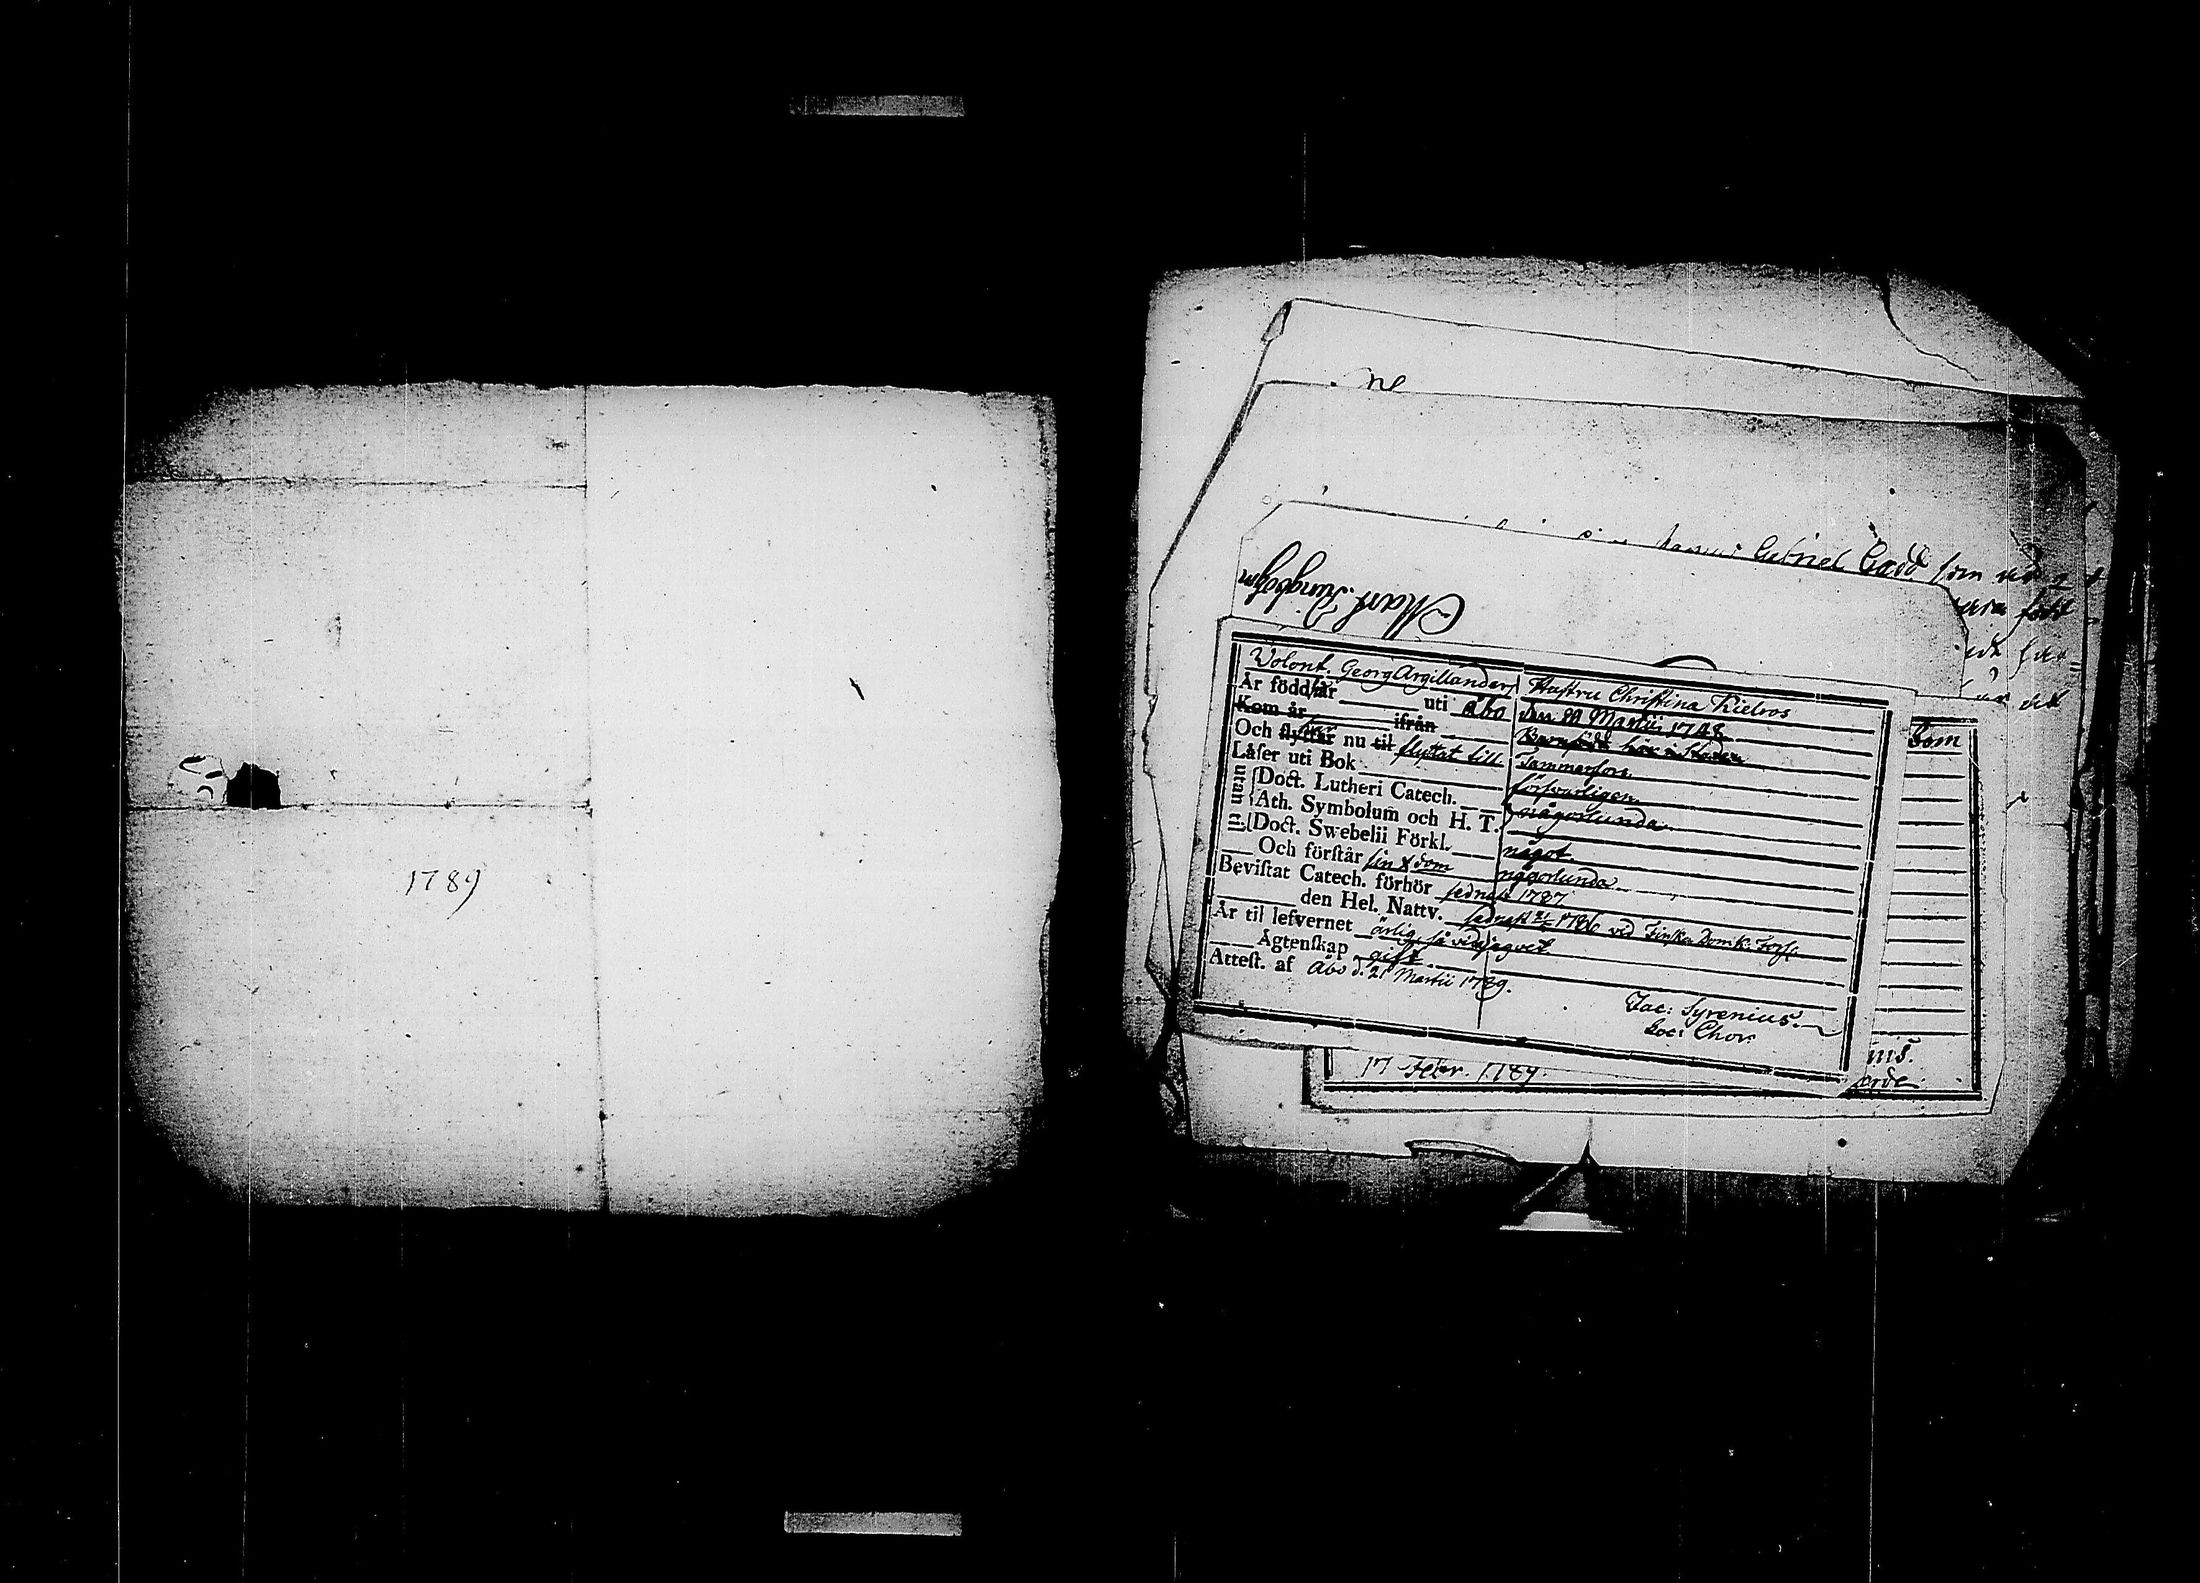 1789
Gabriel Gadd som
Mart. Ljungbohm
Volont. Georg Argillanders Hustru Christina Kielros
År född år uti Åbo den 29 Martii 1748.
Kom år ifrån Barnfödd här i Staden
Och flyttar nu til flyttat till Tammerfors.
Läser uti Bok försvarligen
utan Doct. Lutheri Catech. någorlunda
Ath. Symbolum och H. T.
Doct. Swebelii Förkl. något.
Och förstår sin Xdom någorlunda
Bevistat Catech. förhör sednast 1787.
den Hel. Nattv. sednast 1786 vid Finska Domk. Förs.
Är til lefvernet ärlig, så vidt jag vet.
Ägtenskap gift.
Attest. af Åbo d. 21 Martii 1789.
Jac: Syrenius.
Loc: Chor.
17 Febr. 1789.